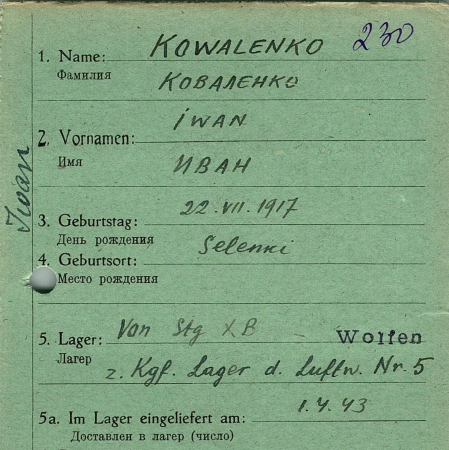 230
1. Name: KOWALENKO
Фамилия КОВАЛЕНКО
IWAN
2. Vornamen:
Имя ИВАН
Iwan
3. Geburtstag: 22.VII.1917
День рождения
4. Geburtsort: Selenki
Место рождения
5. Lager: Von Stg XB – Wolfen
Лагер z. Kgf. Lager d. Luftw. Nr. 5
5a. Im Lager eingeliefert am: 1.4.43
Доставлен в лагер (число)